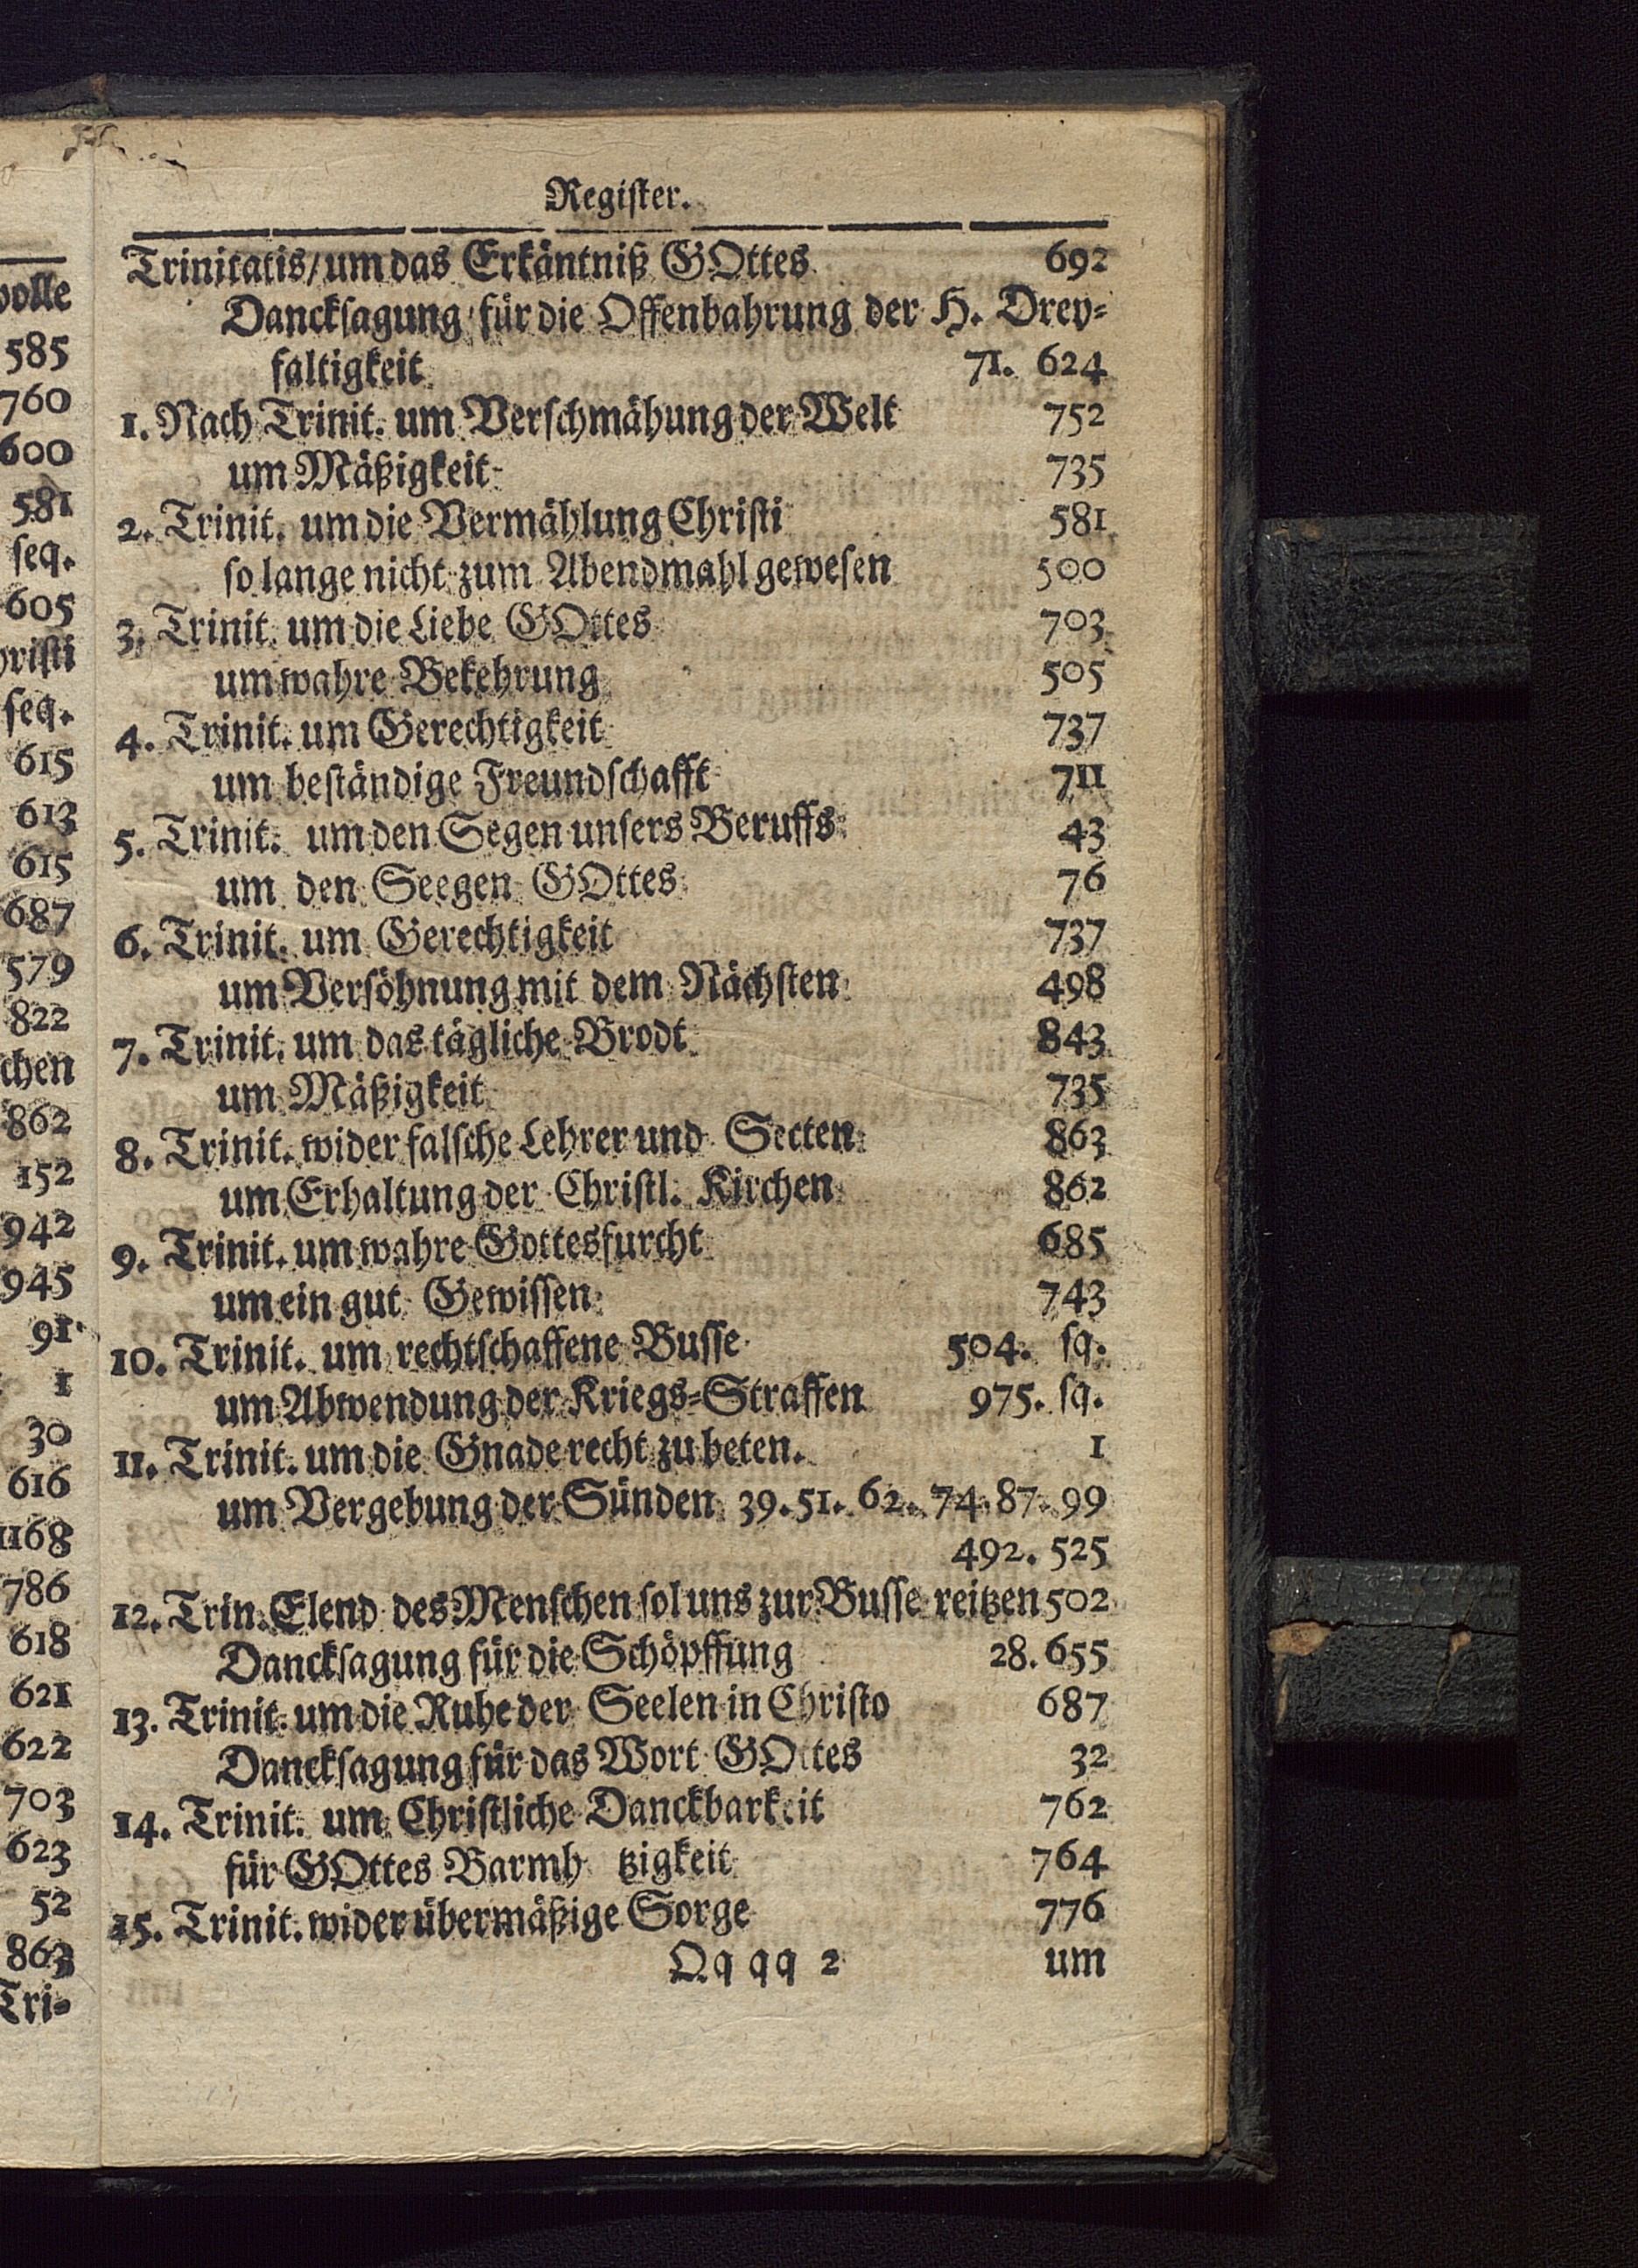 volle
585
760
600
581
seq.
605
hristi
seq.
615
613
615
687
579
822
chen
862
152
942
945
91.
1
30
616
1168
786
618
621
622
703
623
52
863
Tri-
Register.
Trinitatis/ um das Erkäntniß GOttes 692
Dancksagung für die Offenbahrung der H. Drey-
faltigkeit 71. 624
1. Nach Trinit. um Verschmähung der Welt 752
um Mäßigkeit 735
2. Trinit. um die Vermählung Christi 581
so lange nicht zum Abendmahl gewesen 500
3. Trinit. um die Liebe GOttes 703
um wahre Bekehrung 505
4. Trinit. um Gerechtigkeit 737
um beständige Freundschafft 711
5. Trinit. um den Segen unsers Beruffs 43
um den Seegen GOttes 76
6. Trinit. um Gerechtigkeit 737
um Versöhnung mit dem Nächsten 498
7. Trinit. um das tägliche Brodt 843
um Mäßigkeit 735
8. Trinit. wider falsche Lehrer und Secten 863
um Erhaltung der Christl. Kirchen 862
9. Trinit. um wahre Gottesfurcht 685
um ein gut Gewissen 743
10. Trinit. um rechtschaffene Busse 504. sq.
um Abwendung der Kriegs-Straffen 975. sq.
11. Trinit. um die Gnade recht zu beten. 1
um Vergebung der Sünden 39. 51. 62. 74. 87. 99
492. 525
12. Trin. Elend des Menschen sol uns zur Busse reitzen 502
Dancksagung für die Schöpffung 28. 655
13. Trinit. um die Ruhe der Seelen in Christo 687
Dancksagung für das Wort GOttes 32
14. Trinit. um Christliche Danckbarkeit 762
für GOttes Barmh tzigkeit 764
15. Trinit. wider übermäßige Sorge 776
Qq qq 2 um